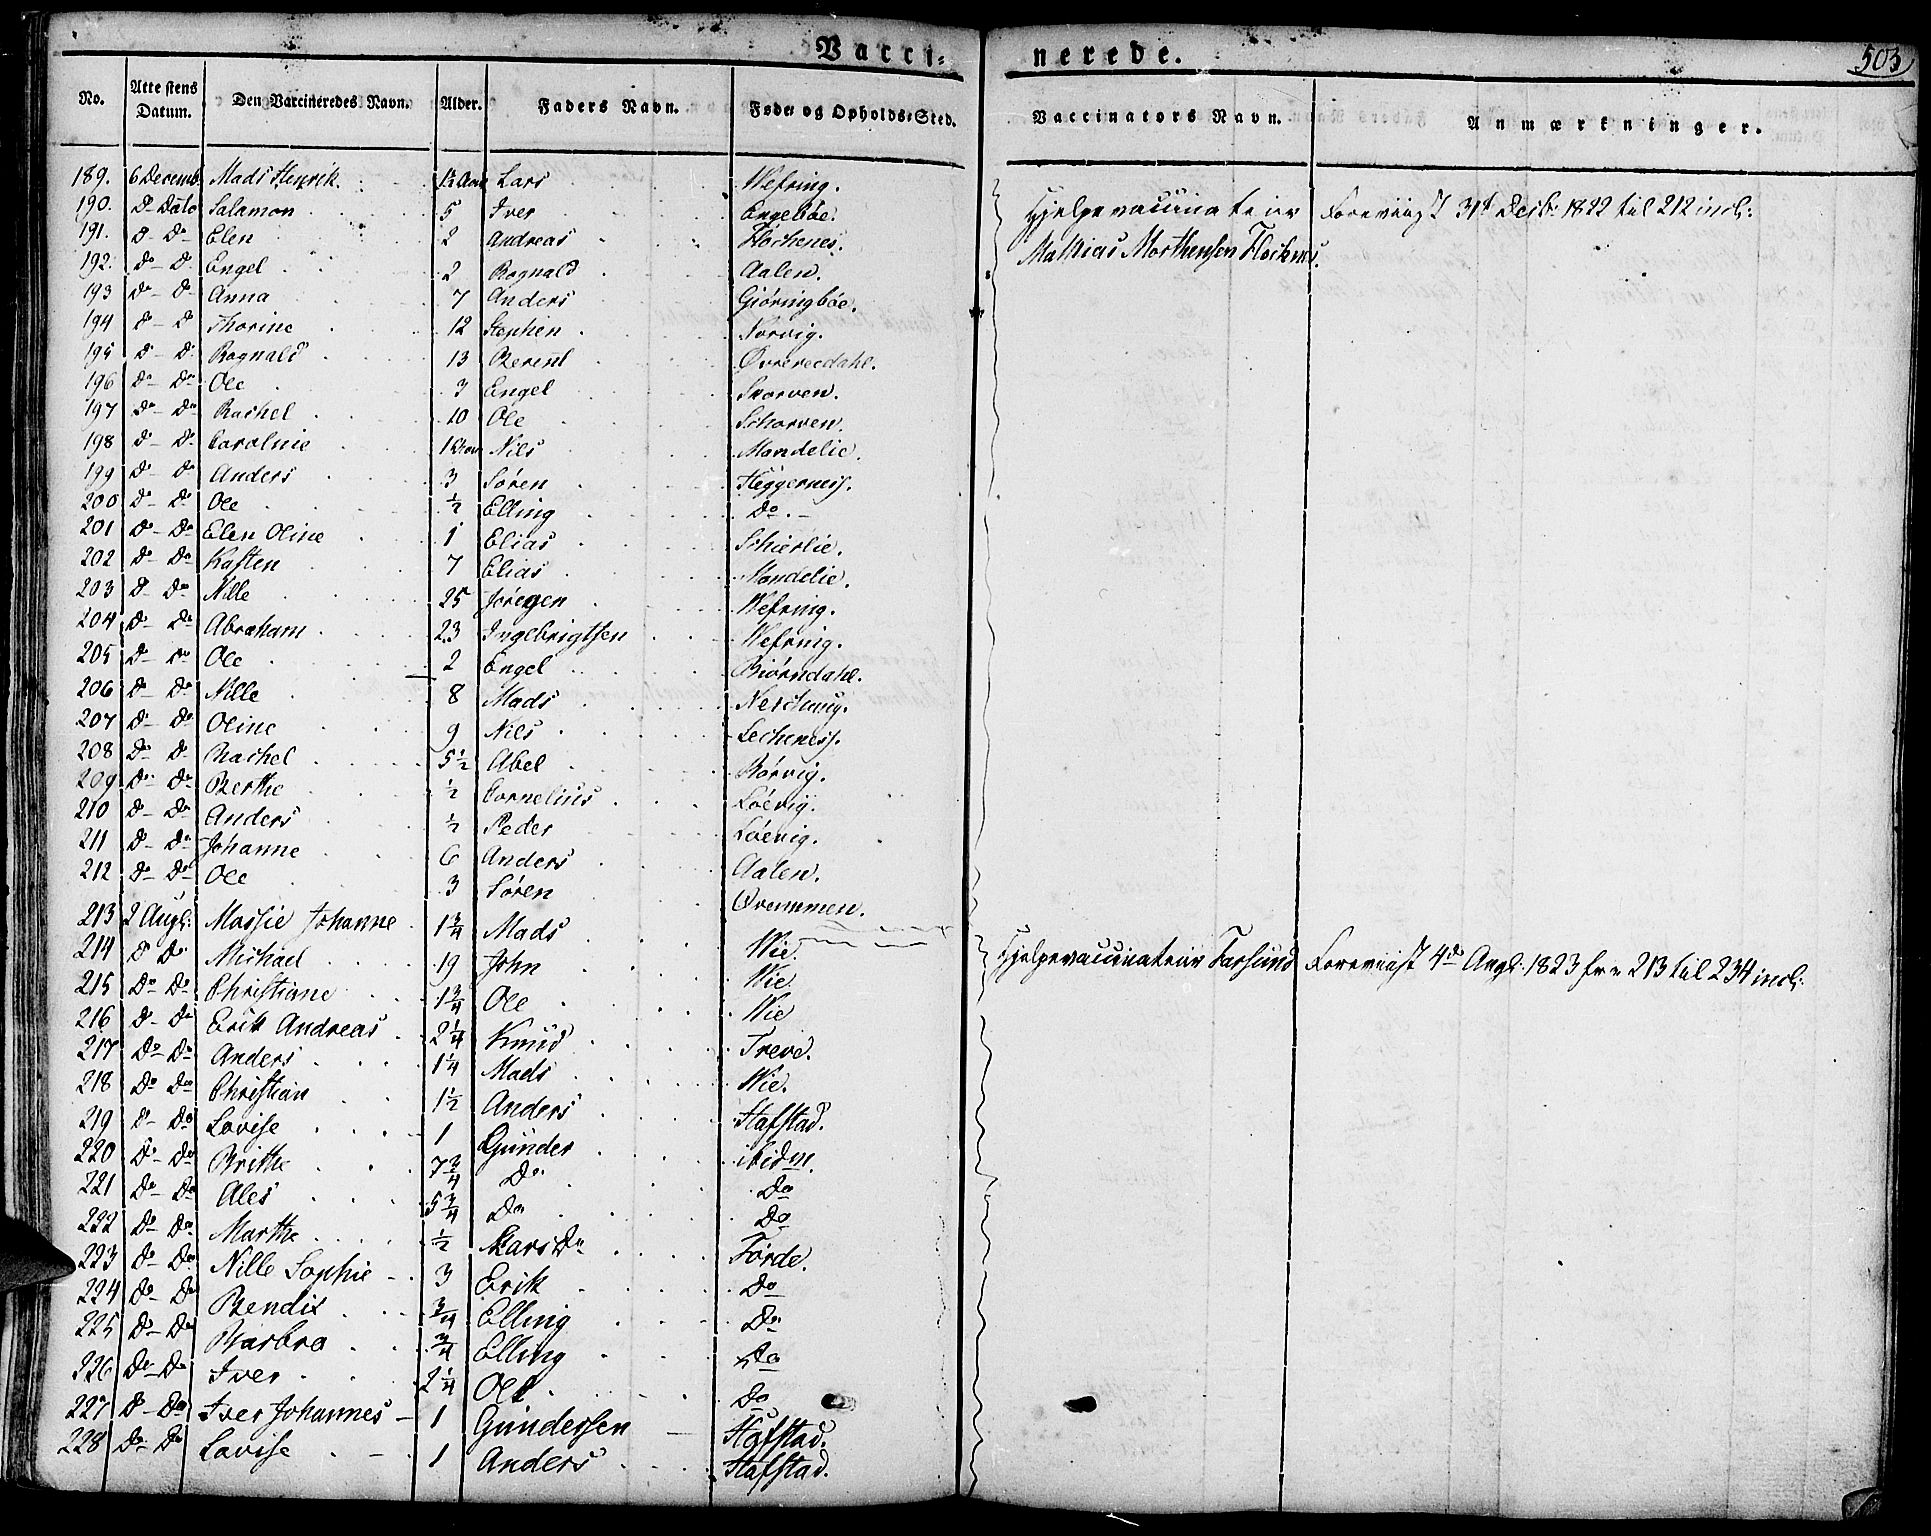 Vacci-nerede.
503
No. | Attestens Datum. | Den Vaccineredes Navn. | Alder. | Faders Navn. | Føde- og Opholds-Sted. | Vaccinators Navn. | Anmærkninger.
189. 6 Decemb. Mads Henrik. Lars Wefring.
190. Do Dato Salamon 5 Iver Engebøe. Hjelpevaccinateur Foreviist 31t Decb: 1822 til 212 incl:
191. Do Do Elen 2 Andreas Flochenes. Mathias Morthensen Flochenes.
192. Do Do Engel 2 Rognald Aalen.
193 Do Do Anna 7 Anders Giøringbøe.
194 Do Do Thorine 12 Stephen Norvig.
195 Do Do Rognald 13 Berent
196 Do Do Ole 3 Engel Skorven.
197 Do Do Rachel 10 Ole Schorven.
198 Do Do Caroline Nils Mandelie.
199 Do Do Anders 3 Søren Heggerness.
200 Do Do Ole ½ Elling Do.
201 Do Do Elen Oline 1 Elias Schierlie.
202 Do Do Kasten 7 Elias Mandelie.
203 Do Do Nille 25 Jørgen Wefring.
204 Do Do Abraham 23 Ingebrigtsen Wefring.
205 Do Do Ole 2 Engel Biørndahl.
206 Do Do Nille 8 Mads
207 Do Do Oline 9 Nils Lecheness.
208 Do Do Rachel 5½ Abel Rørvig.
209 Do Do Berthe ½ Cornelius Løevig.
210 Do Do Anders ½ Peder Løevig.
211 Do Do Johanne 6 Anders Aalen.
212 Do Do Ole 3 Søren
213 2 Augt: Massie Johanne 1¾ Mads Wie. Hjelpevaccinateur Farsund Foreviist 4de Augt: 1823 fra 213 til 234 incl:
214 Do Do Michael 19 John Wie
215 Do Do Christiane 1¾ Ole Wie
216 Do Do Erik Andreas 2¼ Knud Treve.
217 Do Do Anders 1¼ Mads Wie.
218 Do Do Christian 1½ Anders Hafstad.
219 Do Do Lovise 1 Gunder ibidm.
220 Do Do Brithe 7¾ Do Do
221 Do Do Ales 5¾ Do Do
222 Do Do Marthe ½ Førde.
223 Do Do Nille Sophie 3 Erik Do
224 Do Do Bendix ¾ Elling Do
225 Do Do Barbro ¾ Elling Do
226 Do Do Iver 2¼ Ole Do
227 Do Do Iver Johannes 1 Gundersen Hafstad.
228 Do Do Lovise 1 Anders Hafstad.